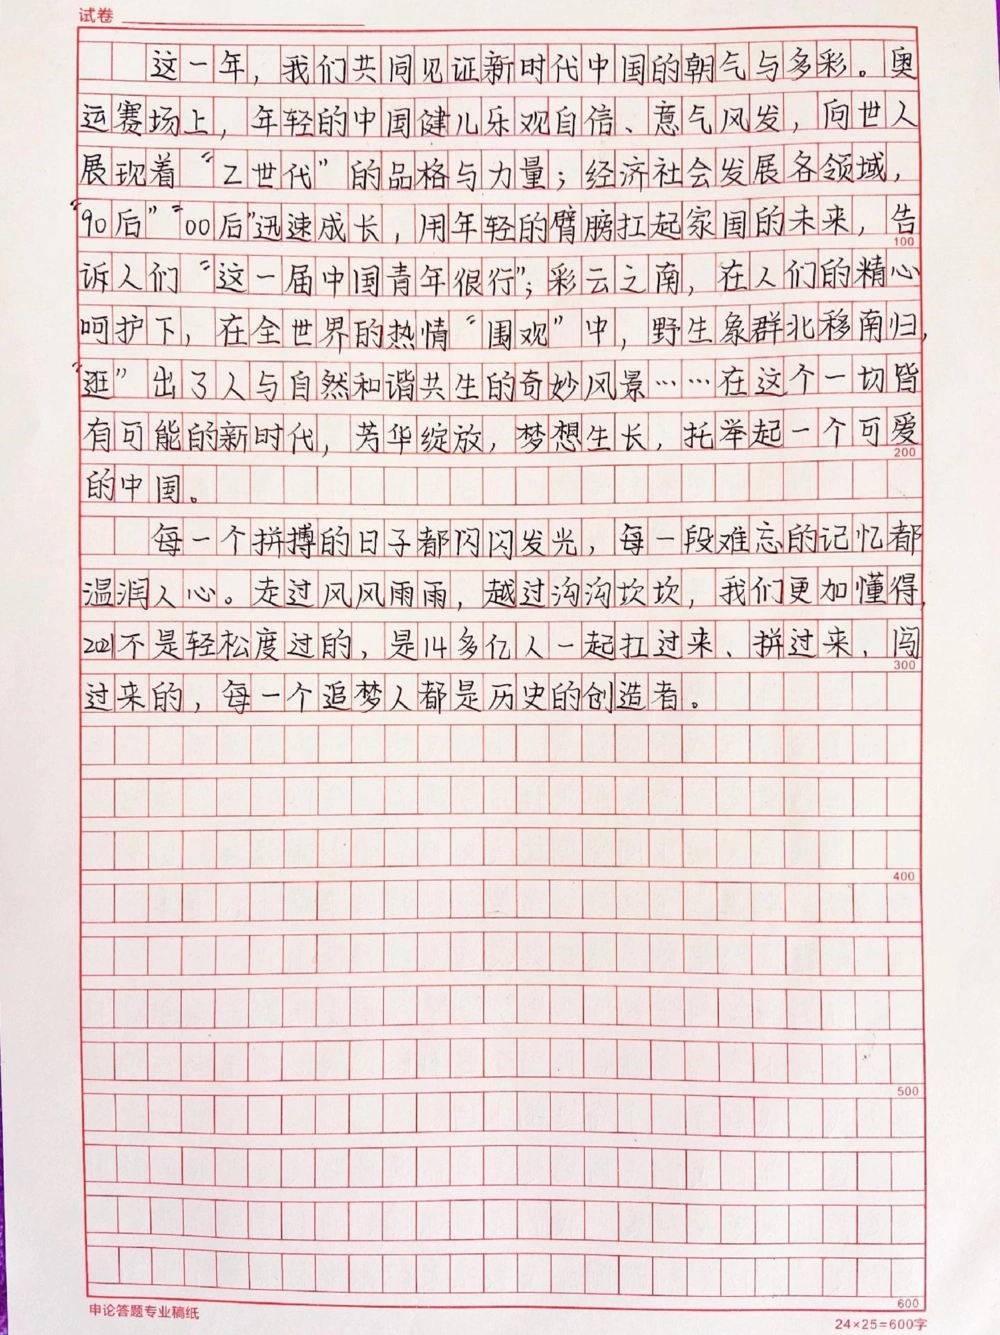 试卷
这一年，我们共同见证新时代中国的朝气与多彩。奥
运赛场上，年轻的中国健儿乐观自信、意气风发，向世人
展现着“Z世代”的品格与力量；经济社会发展各领域，
“90后”“00后”迅速成长，用年轻的臂膀扛起家国的未来，告
100
诉人们“这一届中国青年很行”；彩云之南，在人们的精心
呵护下，在全世界的热情“围观”中，野生象群北移南归，
“逛”出了人与自然和谐共生的奇妙风景……在这个一切皆
有可能的新时代，芳华绽放，梦想生长，托举起一个可爱
200
的中国。
每一个拼搏的日子都闪闪发光，每一段难忘的记忆都
温润人心。走过风风雨雨，越过沟沟坎坎，我们更加懂得，
2021不是轻松度过的，是14多亿人一起扛过来、拼过来、闯
300
过来的，每一个追梦人都是历史的创造者。
400
500
600
申论答题专业稿纸
24×25=600字